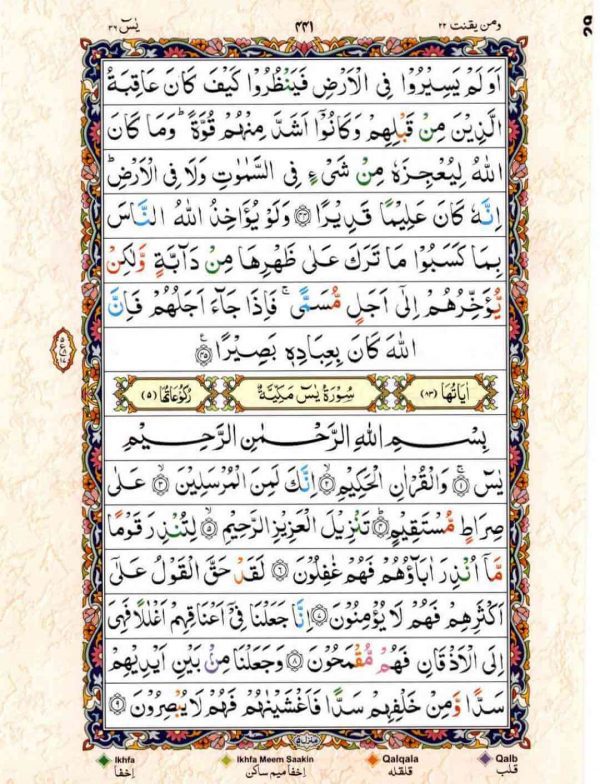 ومن یقنت ۲۲ ۴۴۱ یٰسٓ ۳۶
اَوَلَمْ یَسِیْرُوْا فِی الْاَرْضِ فَیَنْظُرُوْا كَیْفَ كَانَ عَاقِبَةُ
الَّذِیْنَ مِنْ قَبْلِهِمْ وَكَانُوْۤا اَشَدَّ مِنْهُمْ قُوَّةً ؕ وَمَا كَانَ
اللّٰهُ لِیُعْجِزَهٗ مِنْ شَیْءٍ فِی السَّمٰوٰتِ وَلَا فِی الْاَرْضِ ؕ
اِنَّهٗ كَانَ عَلِیْمًا قَدِیْرًا ﴿۴۴﴾ وَلَوْ یُؤَاخِذُ اللّٰهُ النَّاسَ
بِمَا كَسَبُوْا مَا تَرَكَ عَلٰی ظَهْرِهَا مِنْ دَآبَّةٍ وَّلٰكِنْ
یُّؤَخِّرُهُمْ اِلٰۤی اَجَلٍ مُّسَمًّی ۚ فَاِذَا جَآءَ اَجَلُهُمْ فَاِنَّ
اللّٰهَ كَانَ بِعِبَادِهٖ بَصِیْرًا ﴿۴۵﴾
اٰیَاتُهَا (۸۳) سُوْرَةُ یٰسٓ مَكِّیَّةٌ رُكُوْعَاتُهَا (۵)
بِسْمِ اللّٰهِ الرَّحْمٰنِ الرَّحِیْمِ
یٰسٓ ﴿۱﴾ وَالْقُرْاٰنِ الْحَكِیْمِ ﴿۲﴾ اِنَّكَ لَمِنَ الْمُرْسَلِیْنَ ﴿۳﴾ عَلٰی
صِرَاطٍ مُّسْتَقِیْمٍ ﴿۴﴾ تَنْزِیْلَ الْعَزِیْزِ الرَّحِیْمِ ﴿۵﴾ لِتُنْذِرَ قَوْمًا
مَّاۤ اُنْذِرَ اٰبَآؤُهُمْ فَهُمْ غٰفِلُوْنَ ﴿۶﴾ لَقَدْ حَقَّ الْقَوْلُ عَلٰۤی
اَكْثَرِهِمْ فَهُمْ لَا یُؤْمِنُوْنَ ﴿۷﴾ اِنَّا جَعَلْنَا فِیْۤ اَعْنَاقِهِمْ اَغْلٰلًا فَهِیَ
اِلَی الْاَذْقَانِ فَهُمْ مُّقْمَحُوْنَ ﴿۸﴾ وَجَعَلْنَا مِنْ بَیْنِ اَیْدِیْهِمْ
سَدًّا وَّمِنْ خَلْفِهِمْ سَدًّا فَاَغْشَیْنٰهُمْ فَهُمْ لَا یُبْصِرُوْنَ ﴿۹﴾
منزل ۵
Ikhfa Ikhfa Meem Saakin Qalqala Qalb
اِخفا اِخفا میم ساکن قلقله قلب